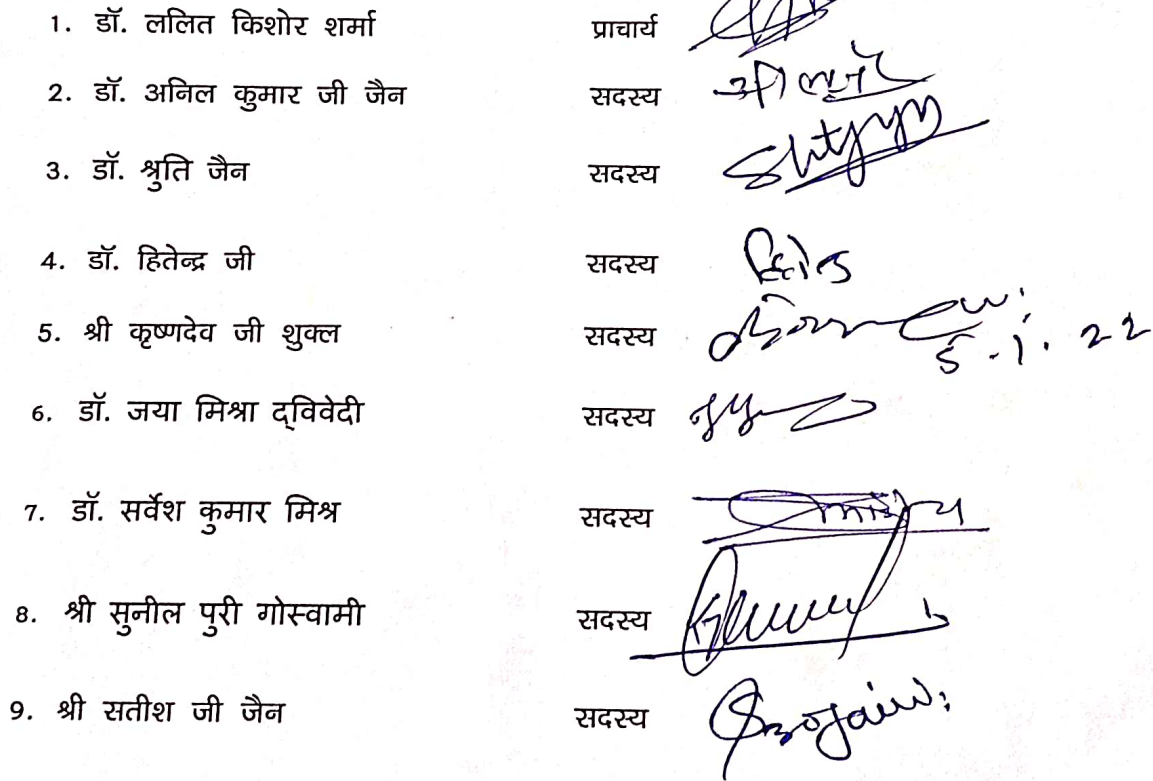 1. डॉ. ललित किशोर शर्मा प्राचार्य
2. डॉ. अनिल कुमार जी जैन सदस्य
3. डॉ. श्रुति जैन सदस्य
4. डॉ. हितेन्द्र जी सदस्य
5. श्री कृष्णदेव जी शुक्ल सदस्य 5.1.22
6. डॉ. जया मिश्रा द्विवेदी सदस्य
7. डॉ. सर्वेश कुमार मिश्र सदस्य
8. श्री सुनील पुरी गोस्वामी सदस्य
9. श्री सतीश जी जैन सदस्य